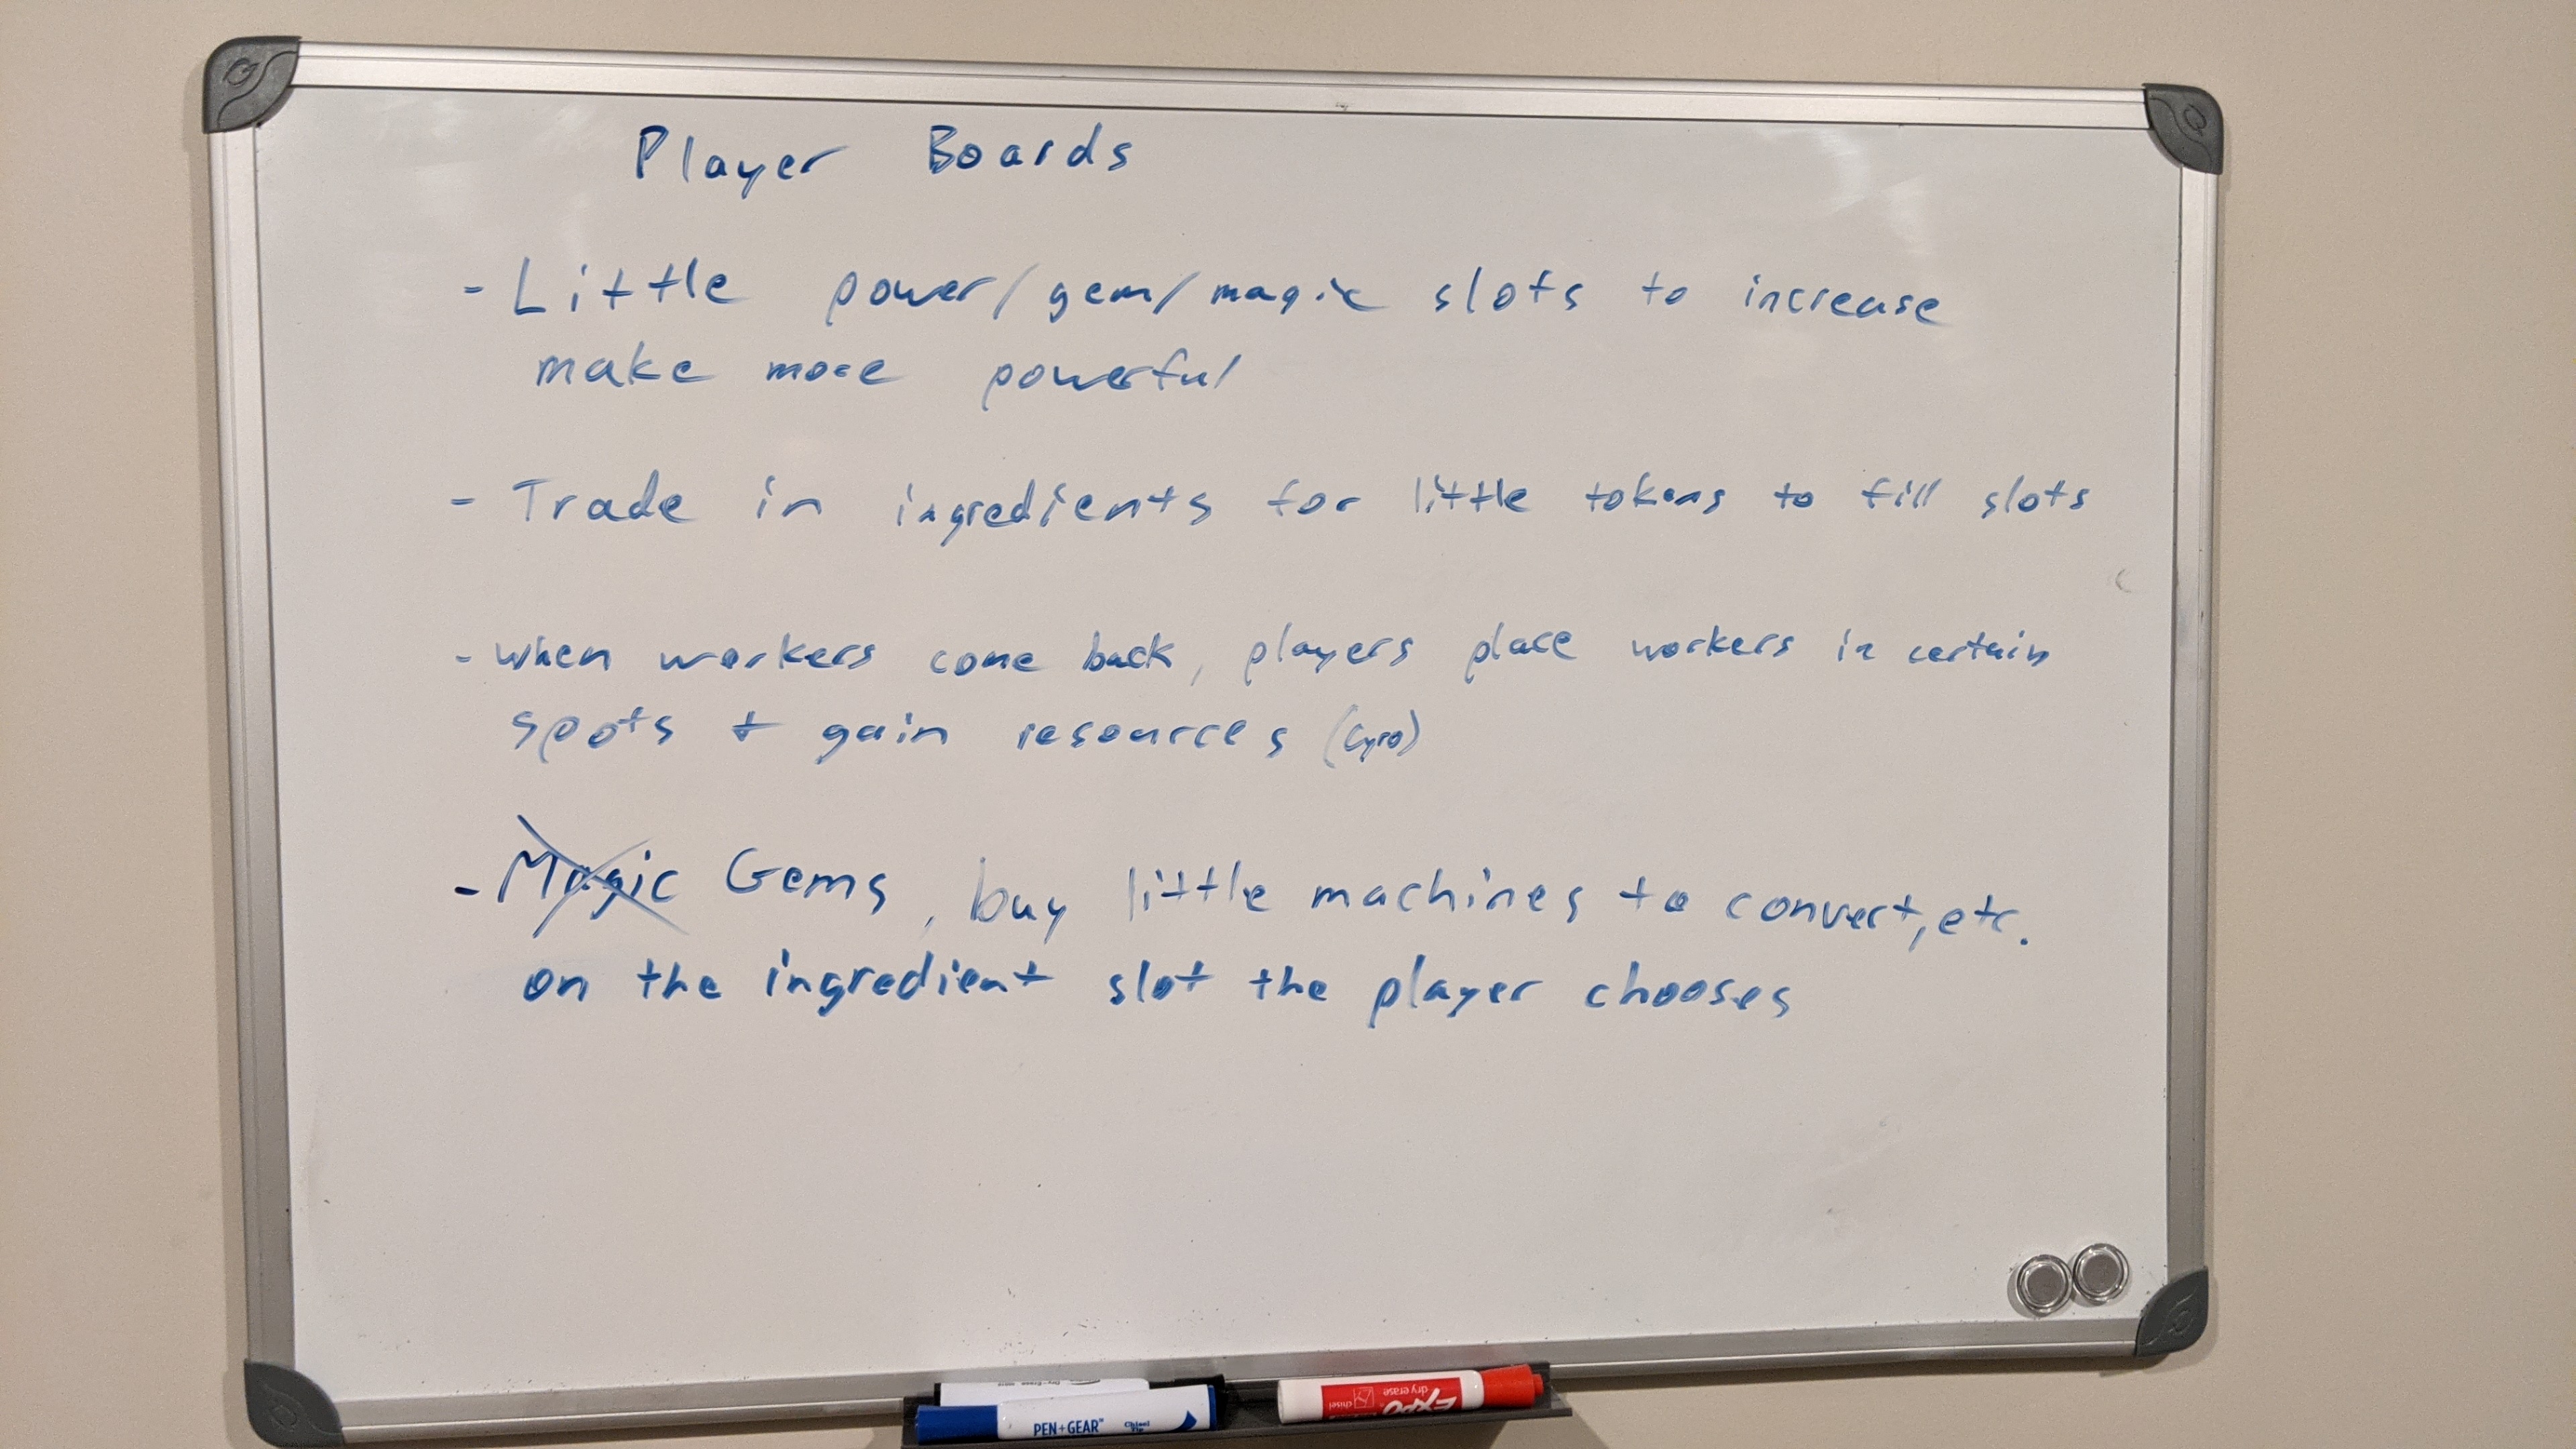 Player Boards
- Little power/gem/magic slots to increase
make more powerful
- Trade in ingredients for little tokens to fill slots
- when workers come back, players place workers in certain
spots + gain resources (Gyro)
- Magic Gems, buy little machines to convert, etc.
on the ingredient slot the player chooses
PEN+GEAR™ Chisel Tip
EXPO dry erase chisel